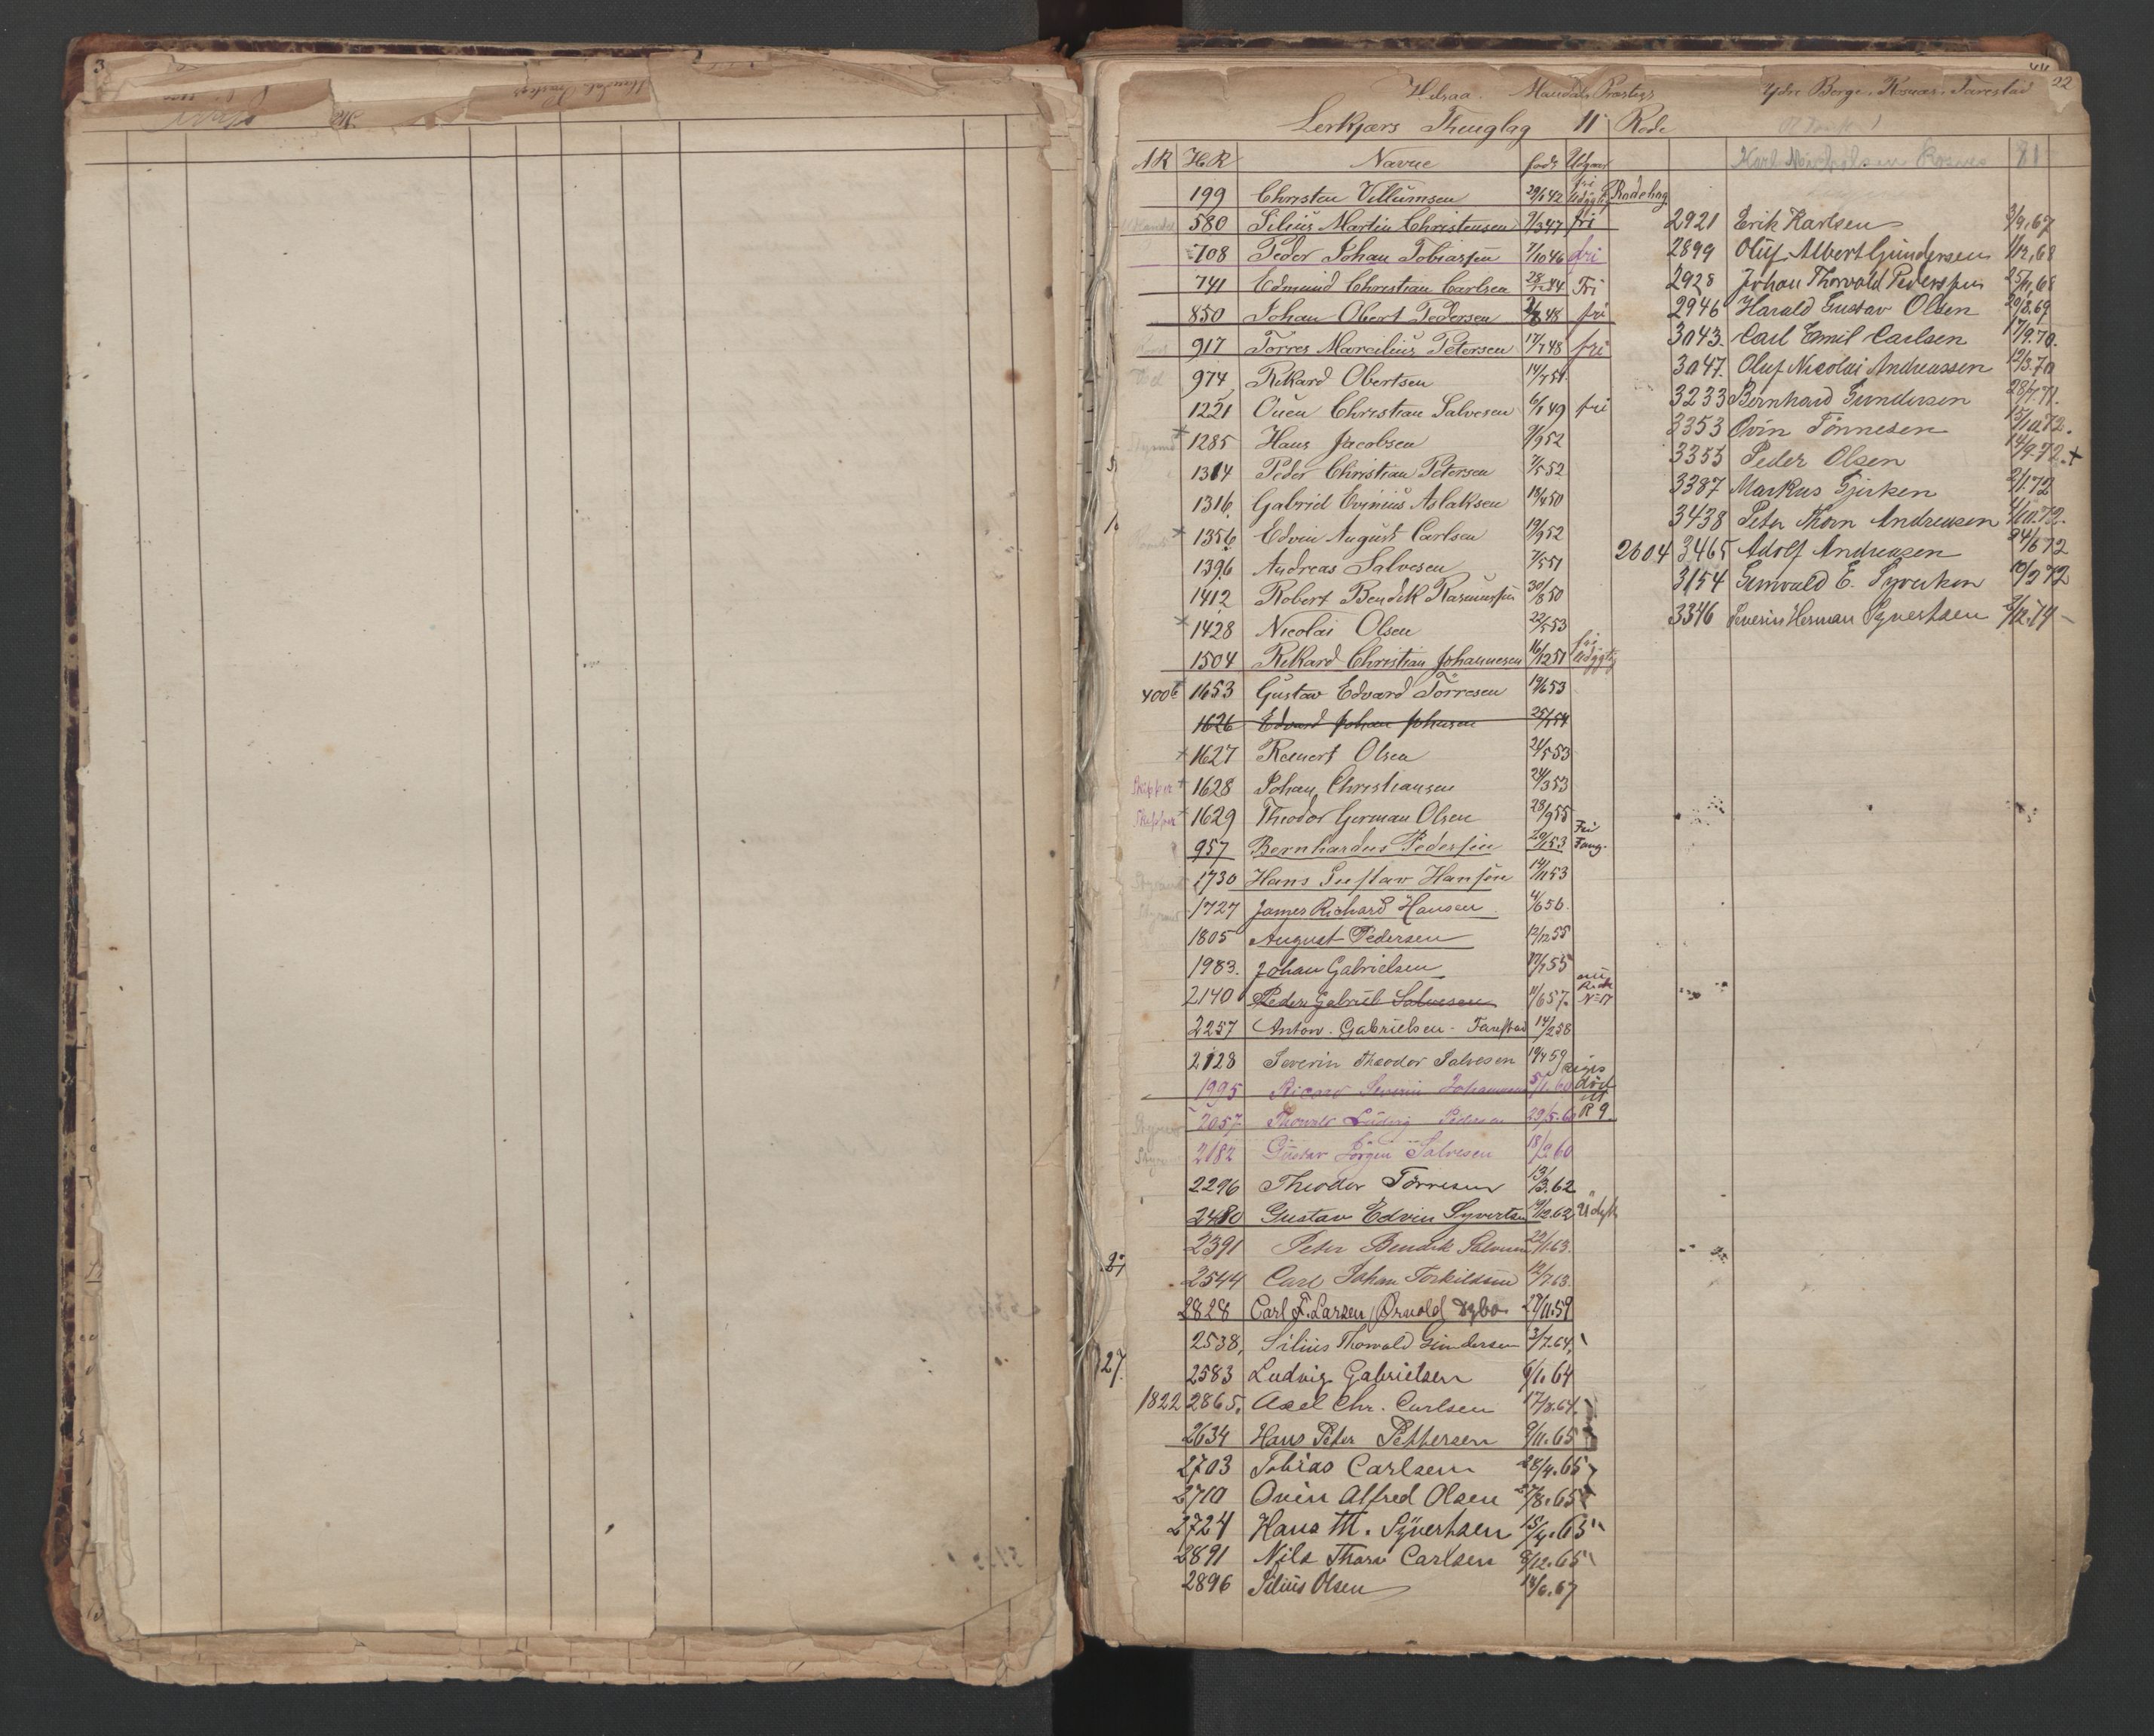 3
44
22
Mandals Præstegj
Ydre Berge, Rosnæs, Tarestad
Thinglag 11 Rode
Karl Rosnæs 81
AR HR Navne født Udgaar
199 Christen Villumsen 29/6 42 fri Udygtig Rodehog
580 Silius Martin Christensen 9/3 47 fri
708 Peder Johan Tobiassen 7/10 46 fri
741 Edmund Christian Carlsen 28/7 44 Fri
850 Johan Obert Pedersen 48 fri
917 Torres Marcelius Petersen 17/7 48 fri
974 Rikard Obertsen 14/7 51
1221 Ouen Christian Salvesen 6/1 49 fri
+ 1285 Hans Jacobsen 9/9 52
1314 Peder Christian Petersen 7/5 52
1316 Gabriel Evinius Aslaksen 18/4 50
+ 1356 Edvin August Carlsen 19/9 52
1396 Andreas Salvesen 7/5 51
1412 Robert Bendik Rasmussen 30/8 50
+ 1428 Nicolai Olsen 22/5 53
1504 Rikard Christian Johannesen 16/12 51 fri Udygtig
4006 1653 Gustav Edvard Törresen 19/6 53
1626 Edvard Johan Johnsen 25/1 54
+ 1627 Reinert Olsen 24/5 53
Skipper + 1628 Johan Christiansen 24/3 53
Skipper + 1629 Theodor German Olsen 28/9 55
957 Bernhardus Pedersen 20/1 53 Fri Tang.
1730 Hans Gustav Hansen 14/11 53
1727 James Richard Hansen 4/6 56
1805 August Pedersen 12/12 55
1983. Johan Gabrielsen 17/7 55
2140 Peder Gabriel Salvesen 11/6 57. Rode No 17
2257 Anton. Gabrielsen. Tarestad 14/2 58
2128 Severin Theodor Salvesen 19/4 59
1995 Ricard Severin Johannesen 5/1 60 død
2057 Thorvald Ludvig Pedersen 29/5. 60 R 9
2182 Gustav Jörgen Salvesen 18/2 60
2296 Theodor Törresen 13/3. 62
2480 Gustav Edvin Syvertsen 19/12. 62 Udygt
2391 Peter Bendik Salvesen 22/1 63.
27
2544 Carl Johan Torkildsen 12/7 63.
2828 Carl F. Larsen 29/11. 59
2538, Silius Thorvald Gundersen 3/7. 64,
27.
2583 Ludvig Gabrielsen 6/1. 64
1822 2865. Axel Chr. Carlsen 17/8. 64.
2634 Hans Peter Pettersen 9/11. 65
2703 Tobias Carlsen 28/4. 65
2710 Ovin Alfred Olsen 27/8. 65
2724 Hans M. Syvertsen 15/4. 65
2891 Nils Thorv Carlsen 8/12. 65
2896 Silius Olsen 14/6. 67
2921 Erik Karlsen 3/9. 67
2899 Oluf Albert Gundersen 1/12, 68
2928 Johan Thorvald Pederssen 25/11, 68
2946 Harald Gustav Olsen 20/3. 69
3043. Carl Emil Carlsen 17/9. 70.
3047. Oluf Nicolai Andreassen 12/3. 70
3233 Bernhard Gundersen 28/7. 71.
3353 Ovin Tönnesen 15/10. 72.
3355 Peder Olsen 14/9. 72. +
3387 Markus Gjertsen 2/1. 72
3438 Peter Thom Andreasen 4/10. 72.
2604 3465 Adolf Andreasen 24/6 72
3154 Gunvald E. Syvertsen 10/2 72
3346 Severin Herman Syvertsen 9/12. 74